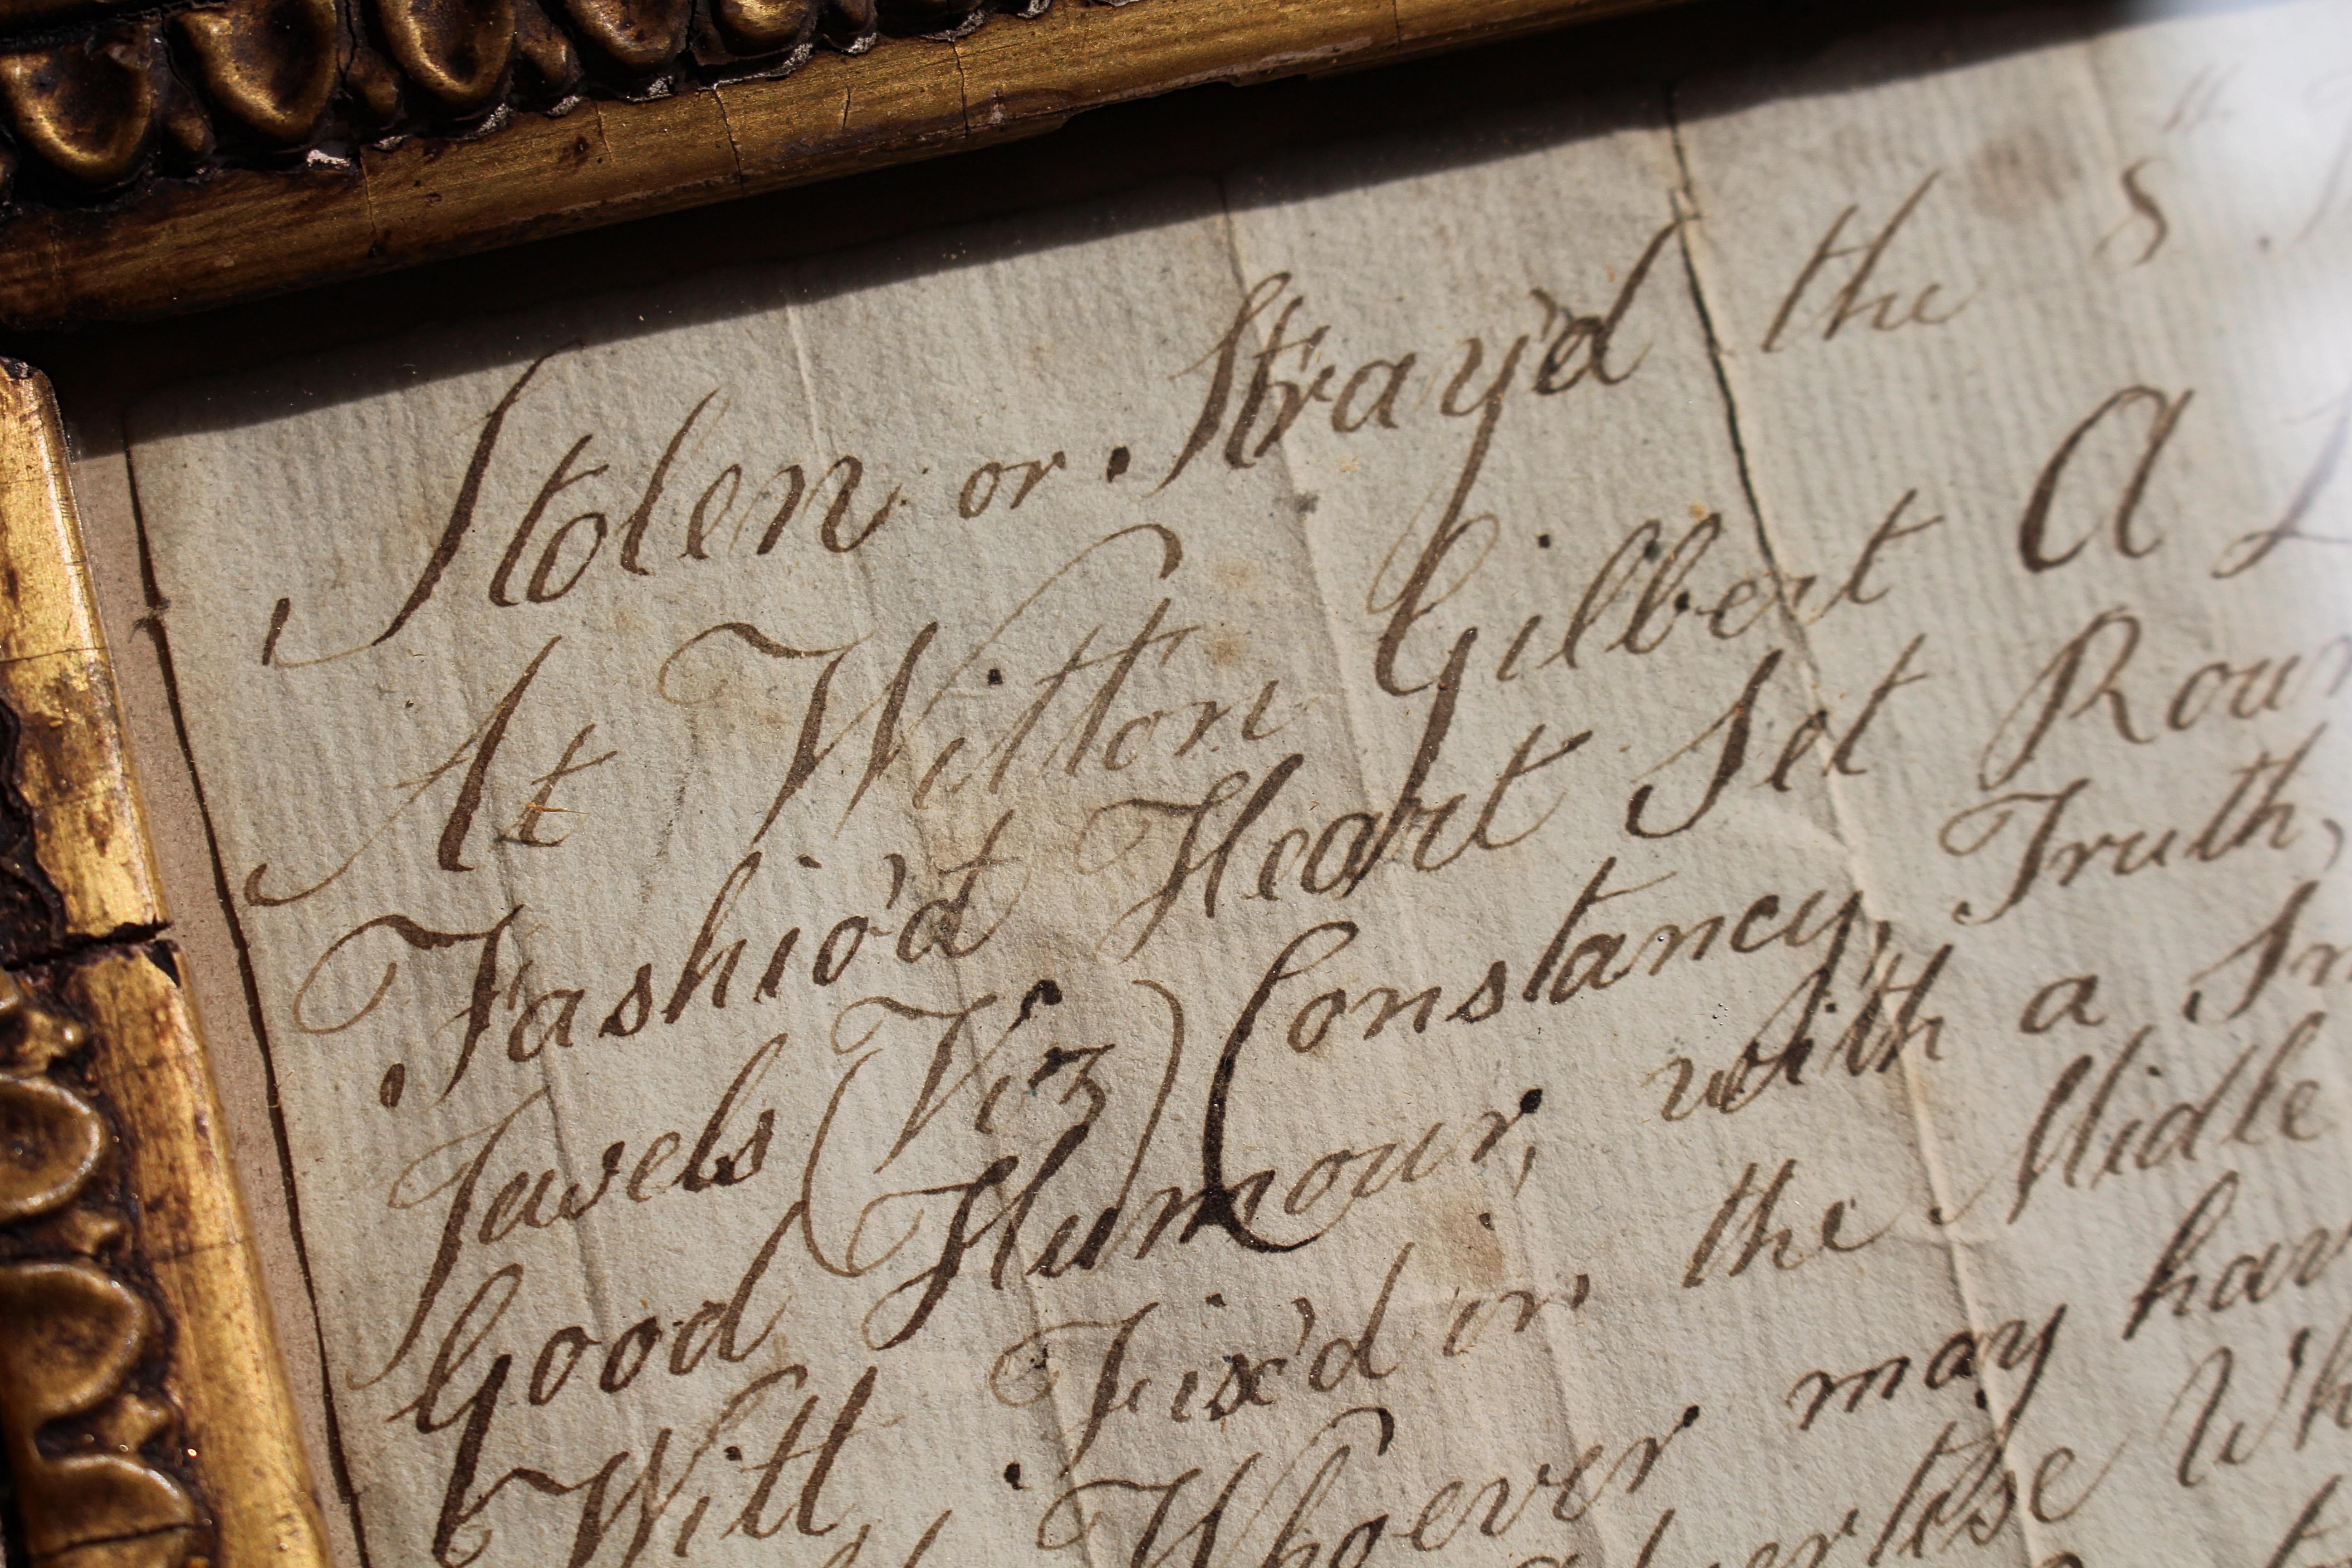 Stolen or Stray'd the 8
At Witton Gilbert A
Fashio'd Heart Set Rou
Juwels (Viz) Constancy, Truth,
Good Humour, with a
Witt Fix'd in the Midle
Whoever may hav